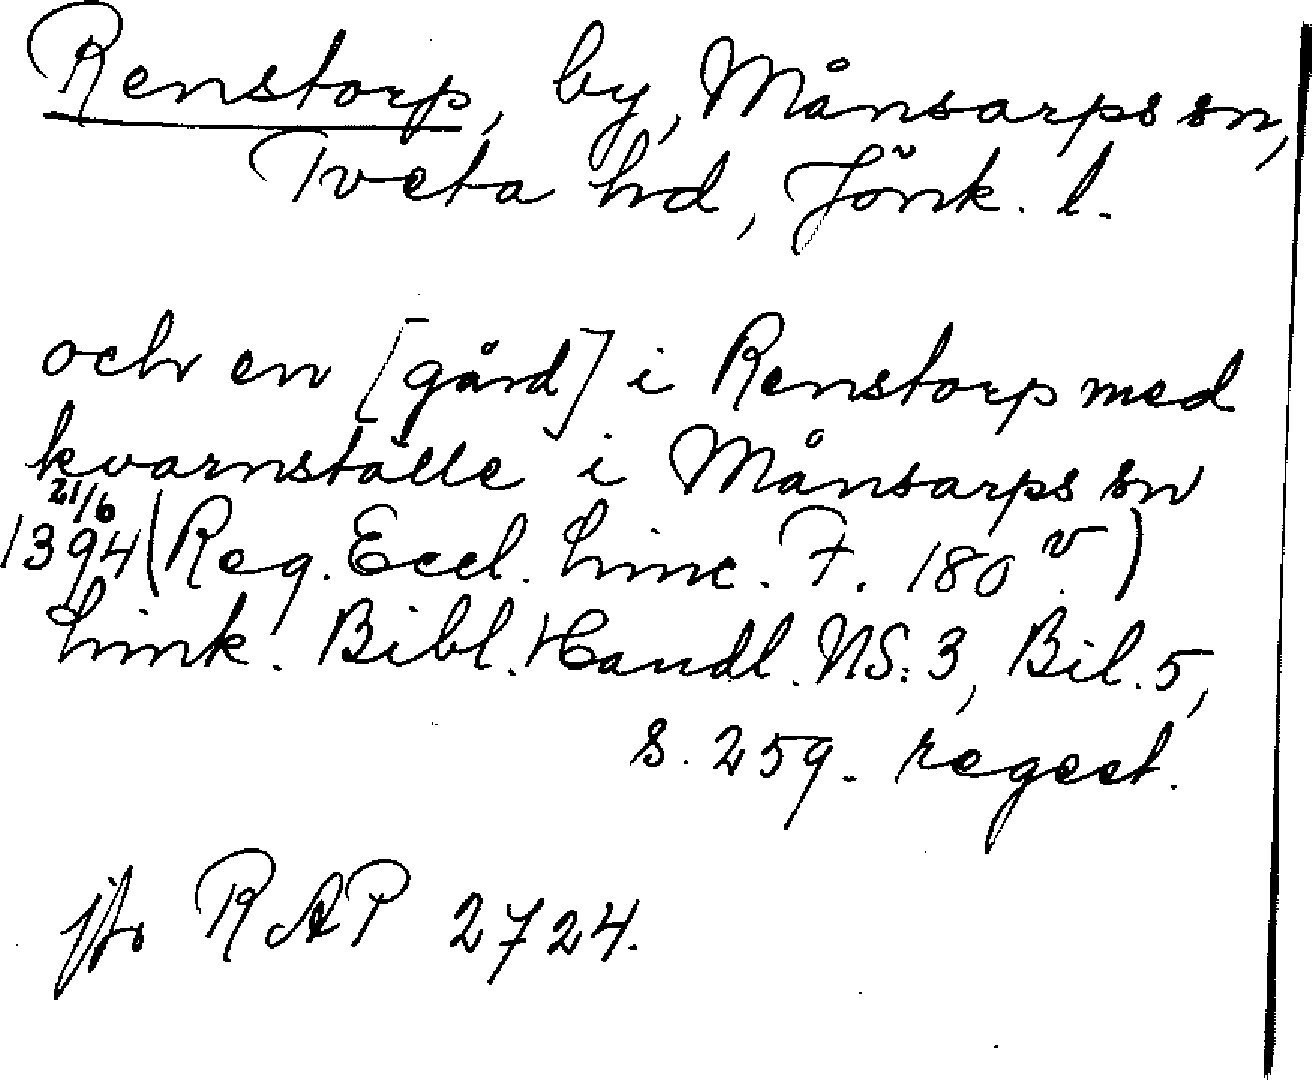 Renstorp, by, Månsarps sn,
Tveta hd, Jönk. l.
och en [gård] i Renstorp med
kvarnställe i Månsarps sn
21/6
1394 (Reg. Eccl. Linc. F. 180 v.)
Link. Bibl. Handl. NS: 3, Bil. 5,
s. 259. regest.
jfr RAP 2724.